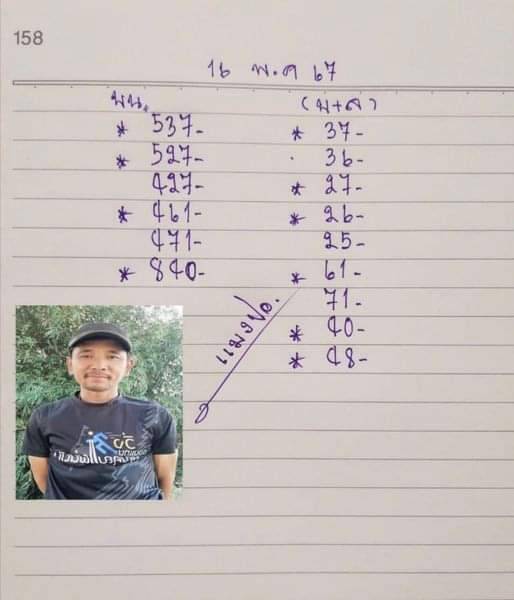 158
16 พ.ค 67
บน. (ม+ล)
* 537- * 37-
* 527- . 36-
427- * 27-
* 461- * 26-
471- 25-
* 840- * 61-
71-
* 40-
* 48-
วิ่ง